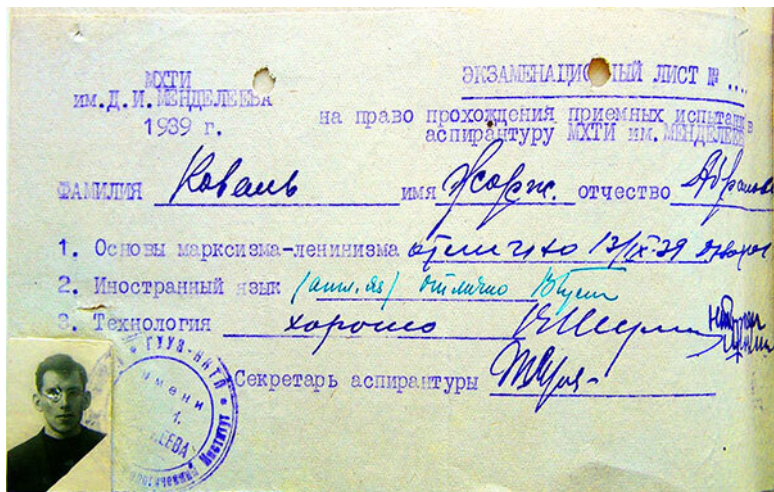 МХТИ
им.Д.И.МЕНДЕЛЕЕВА
1939 г.
ЭКЗАМЕНАЦИОННЫЙ ЛИСТ №
на право прохождения приемных испытаний в
аспирантуру МХТИ им. МЕНДЕЛЕЕВА
ФАМИЛИЯ Коваль имя Жорж. отчество Абрамов
1. Основы марксизма-ленинизма отлично 13/IX-39
2. Иностранный язык (англ. яз) отлично
3. Технология хорошо
Секретарь аспирантуры
ГУУЗ-НКТП
имени
Институт